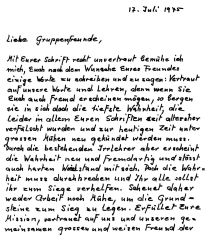 17. Juli 1975
Liebe Gruppenfreunde,
Mit Eurer Schrift recht unvertraut bemühe ich
mich, Euch nach dem Wunsche Eures Freundes
einige Worte zu schreiben und zu sagen: Vertraut
auf unsere Worte und Lehren, denn wenn sie
Euch auch fremd erscheinen mögen, so bergen
sie in sich doch die tiefste Wahrheit, die
leider in allen Euren Schriften seit altersher
verfälscht wurden und zur heutigen Zeit unter
grossen Mühen neu gekündet werden muss.
Durch die bestehenden Irrlehren aber erscheint
die Wahrheit neu und fremdartig und stösst
auch harten Widerstand mit sich. Doch die Wahr-
heit muss durchbrechen und Ihr alle sollet
ihr zum Siege verhelfen. Scheuet daher
weder Arbeit noch Mühe, um die Grund-
steine zum Sieg zu legen. Erfüllet Eure
Mission, vertrauet auf uns und unseren ge-
meinsamen grossen und weisen Freund der